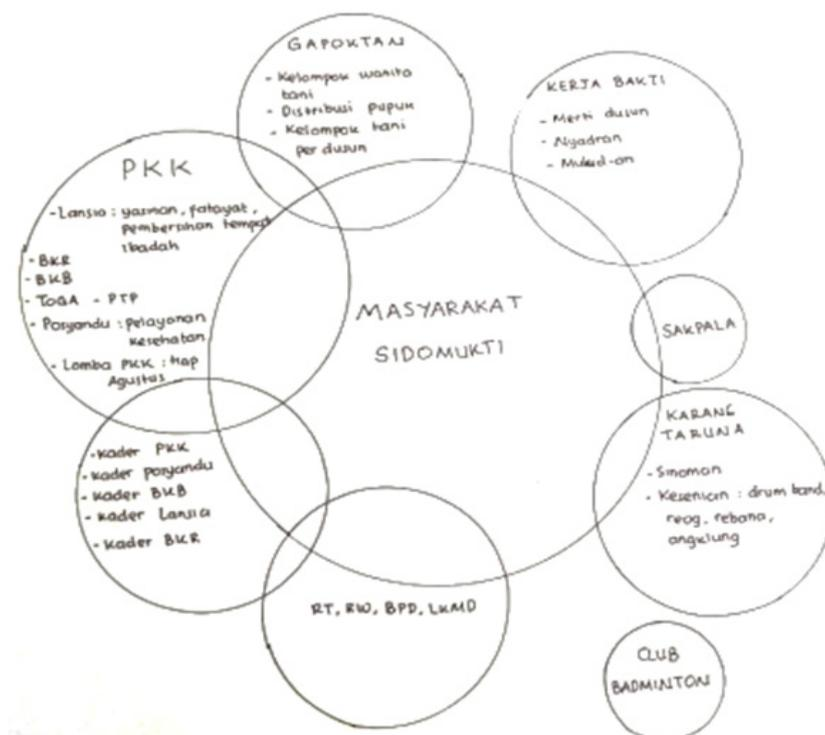 GAPOKTAN
- Kelompok wanita
tani
- Distribusi pupuk
- Kelompok tani
per dusun
KERJA BAKTI
- Merti dusun
- Nyadran
- Mulud-an
PKK
- Lansia : yasinan, fatayat,
pembersihan tempat
ibadah
- BKR
- BKB
- TOGA - PTP
- Posyandu : pelayanan
kesehatan
- Lomba PKK : tiap
Agustus
MASYARAKAT
SIDOMUKTI
SAKPALA
KARANG
TARUNA
- Sinoman
- Kesenian : drum band,
reog, rebana,
angklung
- Kader PKK
- Kader posyandu
- Kader BKB
- Kader Lansia
- Kader BKR
RT, RW, BPD, LKMD
CLUB
BADMINTON